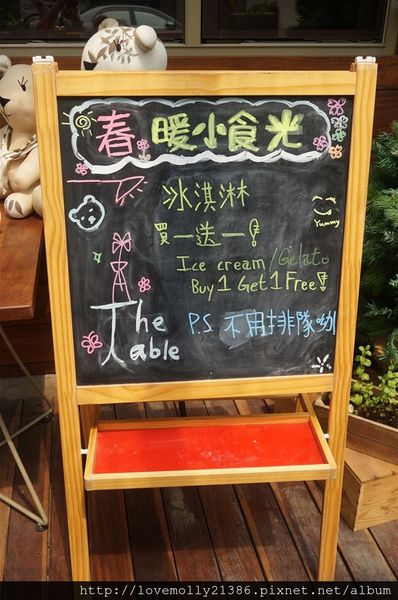 春暖小食光
冰淇淋
買一送一!
Yummy
Ice cream/Gelato
Buy 1 Get 1 Free!
The Table
P.S 不用排隊呦
http://lovemolly21386.pixnet.net/album